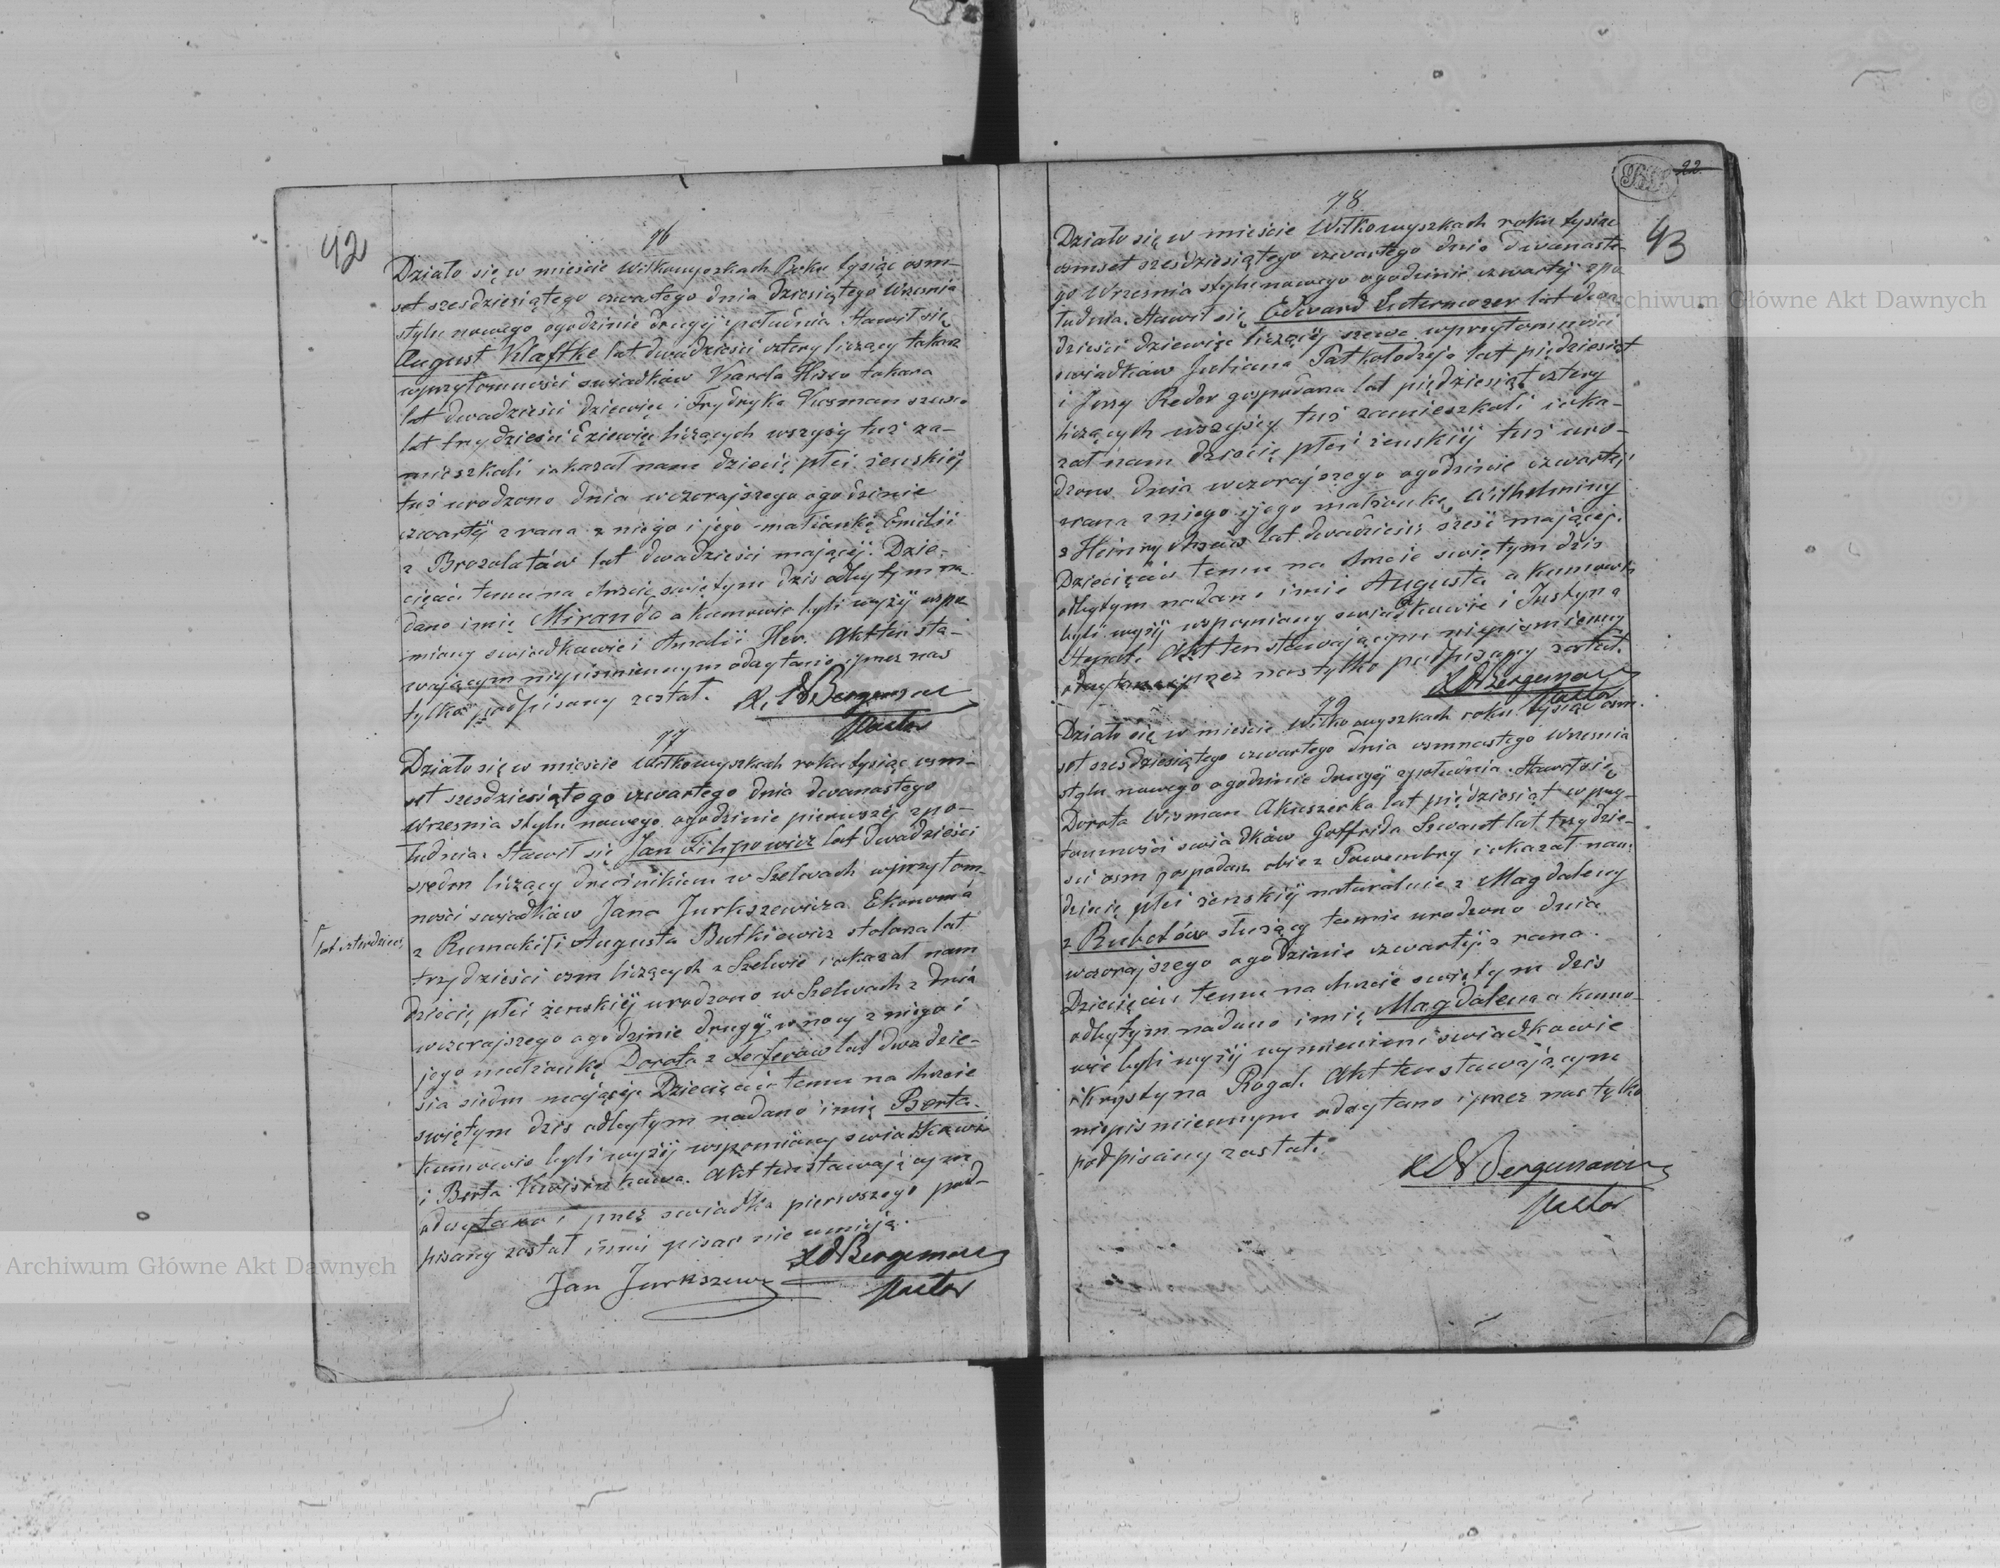 42
76
Działo się w mieście Wilkowyszkach Roku tysiąc osm-
set szesdziesiątego czwartego dnia dziesiątego Września
stylu nowego ogodzinie drugiy zpołudnia. Stawił się
August Klaftke lat dwadzieści cztery liczący tokarz
wprzytomności swiadków Karola tokarza
lat dwadzieści dziewięć i Frydryka Kosman szewca
lat trzydzieści dziewięć liczących wszyscy tuż za-
mieszkali iokazał nam dziecię płci żenskiéj
tuż urodzone dnia wczorajszego ogodzinie
czwartéj zrana z niego i jego małżonki Emilii
z Brozolatów lat dwadzieści mającéj. Dzie-
cięciu temu na chrzcie swiętym dzis odbytym na-
dano imię Miranda a kumowie byli wyżéj wspo-
miany swiadkowie i Amalii Akt ten sta-
wającym niepismiennym odczytano przez nas
tylko podpisany został. Bergemann
Pastor
77
Działo się w mieście Wiłkowyszkach roku tysiąc osm-
set szesdziesiątego czwartego dnia dwanastego
Wrzesnia stylu nowego ogodzinie pierwszéj zpo-
łudnia. Stawił się Jan Filipowicz lat dwadzieści
siedm liczący w Szelwach wprzytom-
ności swiadków Jana Jurkszewicza Ekonoma
z Rumokiń Augusta Butkiewicz stolarza lat
lat czterdzieści
trzydzieści osm liczących z Szelwie iokazał nam
dziecię płci żenskiéj urodzone w Szelwach z dnia
wczorajszego ogodzinie drugiéj w nocy z niego i
jego małżonki Dorota z lat dwadzie-
scia siedm mającéj. Dziecięciu temu na chrzcie
swiętym dzis odbytym nadano imię Berta.
kumowie byli wyżéj wspomiany swiadkowie
i Berta Akt ten stawającym
odczytano i przez swiadka pierwszego pod-
pisany został inni pisac nie umieją.
Bergemann
Jan Jurkszewicz Pastor
22
43
78
Działo się w mieście Wiłkowyszkach roku tysiąc
osmset szesdziesiątego czwartego dnia dwanaste-
go Wrzesnia stylu nowego ogodzinie czwartéj zpo-
łudnia. Stawił się Edward Lutermozer lat dwa-
dzieści dziewięć liczący szewc wprzytomności
swiadków Juliana Pat kołodzeja lat pięćdziesiąt
i Jerzy Reder gospodarza lat pięćdziesiąt cztery
liczących wszyscy tuż zamieszkali ioka-
zał nam dziecię płci żenskiéj tuż uro-
dzone dnia wczorajszego ogodzinie czwartéj
zrana z niego ijego małżonki Wilhelminy
z lat dwadzieścia szesć mającéj.
Dziecięciu temu na chrzcie swiętym dzis
odbytym nadano imię Augusta a kumowie
byli wyżéj wspomiany swiadkowie i Justyna
Akt ten stawającym niepismienny
odczytano i przez nas tylko podpisany został.
Bergemann
Pastor
79
Działo się w mieście Wiłkowyszkach roku tysiąc osm-
set szesdziesiątego czwartego dnia osmnastego Wrzesnia
stylu nowego ogodzinie drugiéj zpołudnia. Stawił się
Dorota Wisman Akuszerka lat pięćdziesiąt w przy-
tomności swiadków Gotfrida Szwant lat trzydzie-
ści osm gospodarz obie z iokazał nam
dziecię płci żenskiéj naturalnie z Magdaleny
z Rubotów służący tamże urodzone dnia
wczorajszego ogodzinie czwartéj z rana.
Dziecięciu temu na chrzcie swiętym dzis
odbytym nadano imię Magdalena a kumo-
wie byli wyżéj wymienieni swiadkowie
i Krystyna Rogal. Akt ten stawającym
niepismiennym odczytano i przez nas tylko
podpisany został.
Bergemann
Pastor
Archiwum Główne Akt Dawnych
Archiwum Główne Akt Dawnych